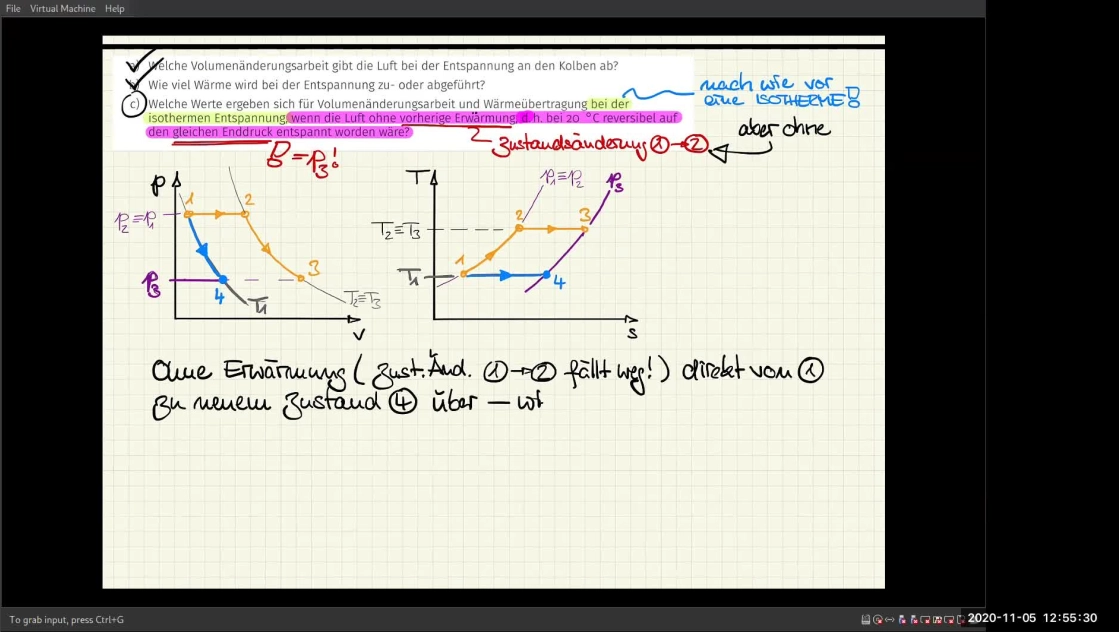 File Virtual Machine Help
a) Welche Volumenänderungsarbeit gibt die Luft bei der Entspannung an den Kolben ab?
b) Wie viel Wärme wird bei der Entspannung zu- oder abgeführt?
c) Welche Werte ergeben sich für Volumenänderungsarbeit und Wärmeübertragung bei der
isothermen Entspannung, wenn die Luft ohne vorherige Erwärmung, d. h. bei 20 °C reversibel auf
den gleichen Enddruck entspannt worden wäre?
nach wie vor
eine ISOTHERME!
aber ohne
Zustandsänderung ①→②
= p₃!
p
1
2
p₂≡p₁
3
p₃
4
T₁
T₂≡T₃
v
T
p₁≡p₂
p₃
2
3
T₂≡T₃
1
T₁
4
s
Ohne Erwärmung (Zust.Änd. ①→② fällt weg!) direkt von ①
zu neuem Zustand ④ über – wi
To grab input, press Ctrl+G
2020-11-05 12:55:30